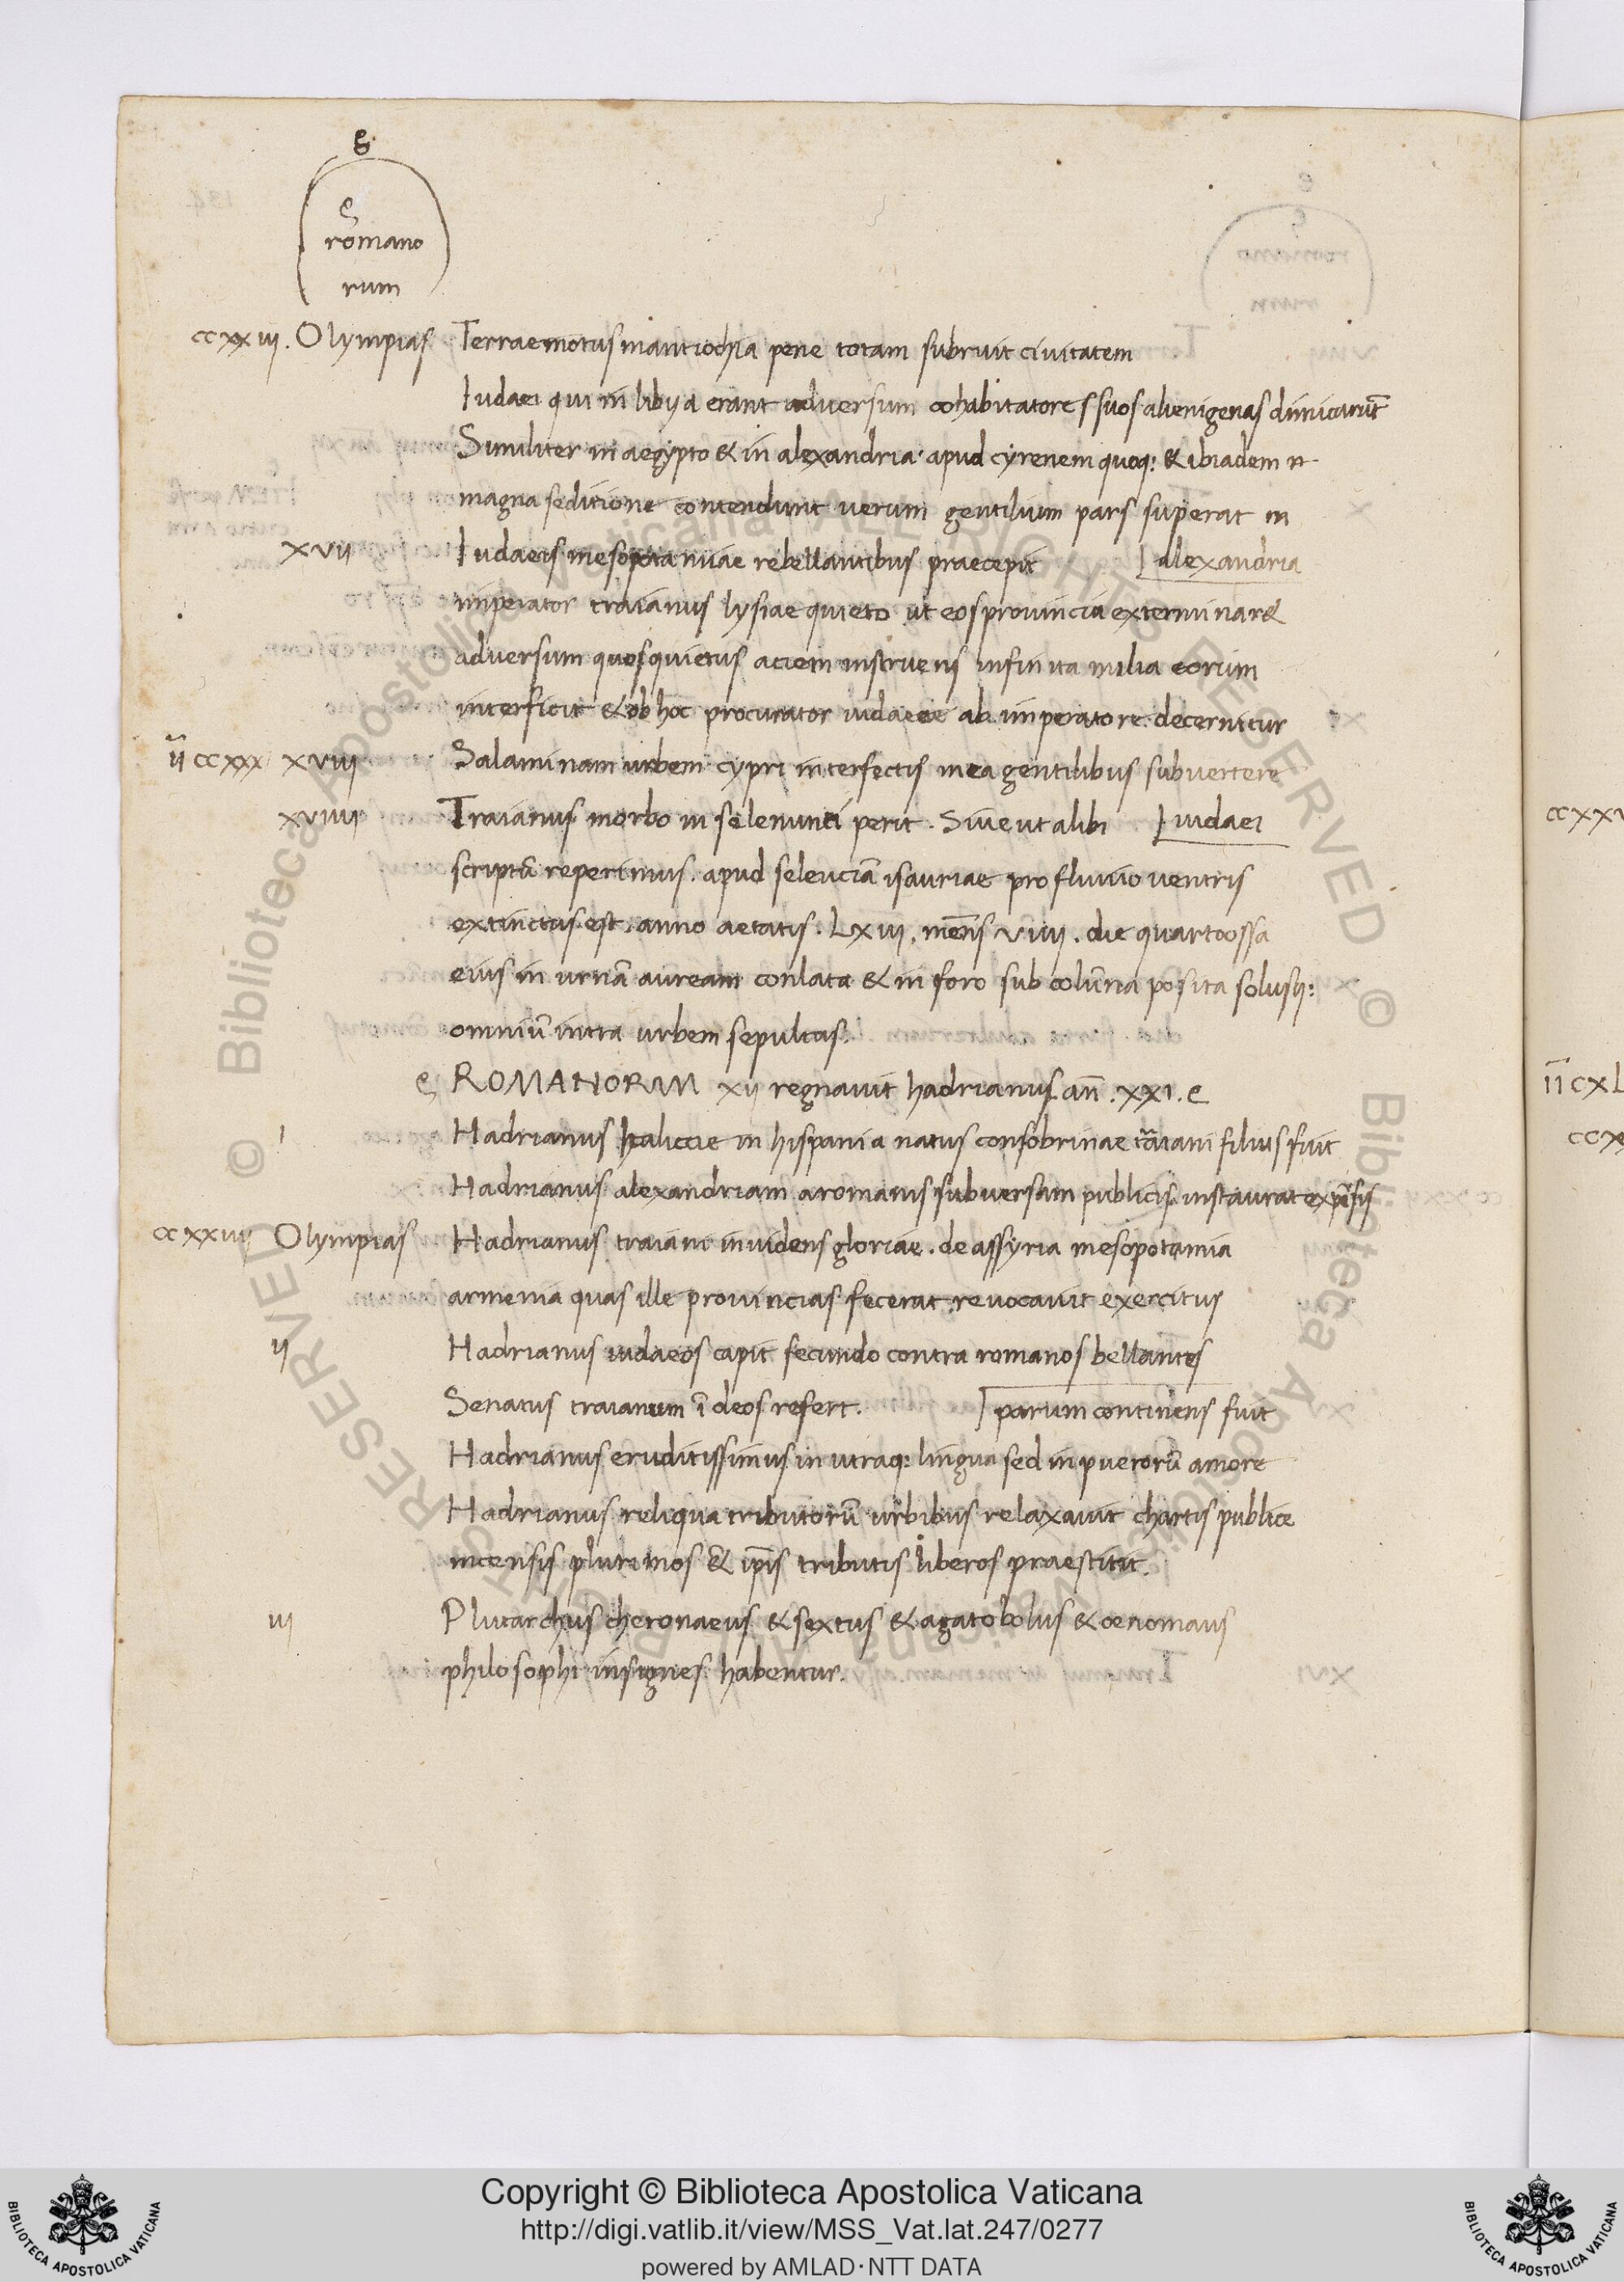 romano
rum
ccxxiii. Olympias Terraemotus in antiochia pene totam subruit civitatem
Iudaei qui in libya erant adversum cohabitatores suos alienigenas dimicarūt
Similiter in aegypto & in alexandria apud cyrenem quoq: &
magna seditione contendunt verum gentilium pars superat in
xvii Iudaeis mesopotamiae rebellantibus praecepit alexandria
imperator traianus lysiae quieto ut eos provincia exterminar&
adversum quos quietus aciem instruens infinita milia eorum
interficit & ob hoc procurator iudaeae ab imperatore decernitur
īī ccxxx xviii Salaminam urbem cypri interfectis in ea gentilibus subvertere
xviiii Traianus morbo in selenunti perit. Sive ut alibi iudaei
scriptū reperimus. apud seleuciā isauriae profluvio ventris
extinctus est. anno aetatis. Lxiii. mens̄ viiii. die quarto ossa
eius in urnā auream conlata & in foro sub colūna posita solusq:
omniū intra urbem sepultus.
ROMANORUM xii regnavit hadrianus. an̄. xxi. e
i Hadrianus Italicae in hispania natus consobrinae traiani filius fuit
Hadrianus alexandriam a romanis subversam publicis instaurat expēsis
ccxxiiii Olympias Hadrianus traiani invidens gloriae. de assyria mesopotamia
armenia quas ille provincias fecerat revocavit exercitus
ii Hadrianus iudaeos capit secundo contra romanos bellantes
Senatus traianum ī deos refert. parum continens fuit
Hadrianus eruditissimus in utraq: lingua sed in puerorū amore
Hadrianus reliqua tributorū urbibus relaxavit chartis publice
incensis plurimos & ip̄is tributis liberos praestitit.
iii Plutarchus cheronaeus & sextus & agatobolus & oenomaus
philosophi insignes habentur.
ccxxv
īī cxL
© Biblioteca Apostolica Vaticana ALL RIGHTS RESERVED © Biblioteca Apostolica Vaticana ALL RIGHTS RESERVED
Copyright © Biblioteca Apostolica Vaticana
http://digi.vatlib.it/view/MSS_Vat.lat.247/0277
powered by AMLAD·NTT DATA
BIBLIOTECA APOSTOLICA VATICANA
BIBLIOTECA APOSTOLICA VATICANA